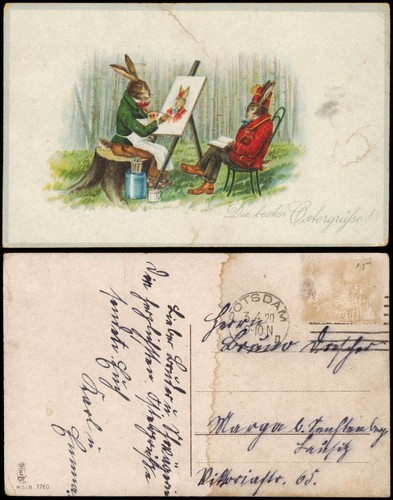 Die besten Ostergrüße!
Lieber Bruder u. Schwägerin
Die herzlichsten Ostergrüße
sendet Euch
Karl u.
Emma.
POTSDAM
3.4.20
-10N
15
Herrn
Bruno
Marga b. Senftenberg
Lausitz
Viktoriastr. 65.